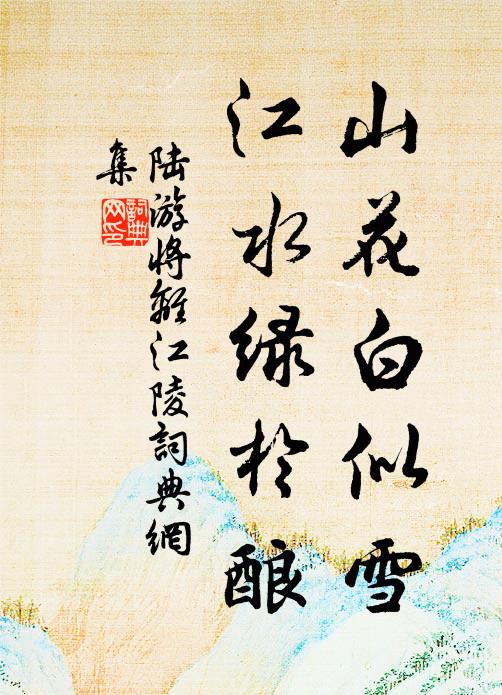 山花白似雪
江水绿於酿
陆游将離江陵詞典網
集
詞典
网印